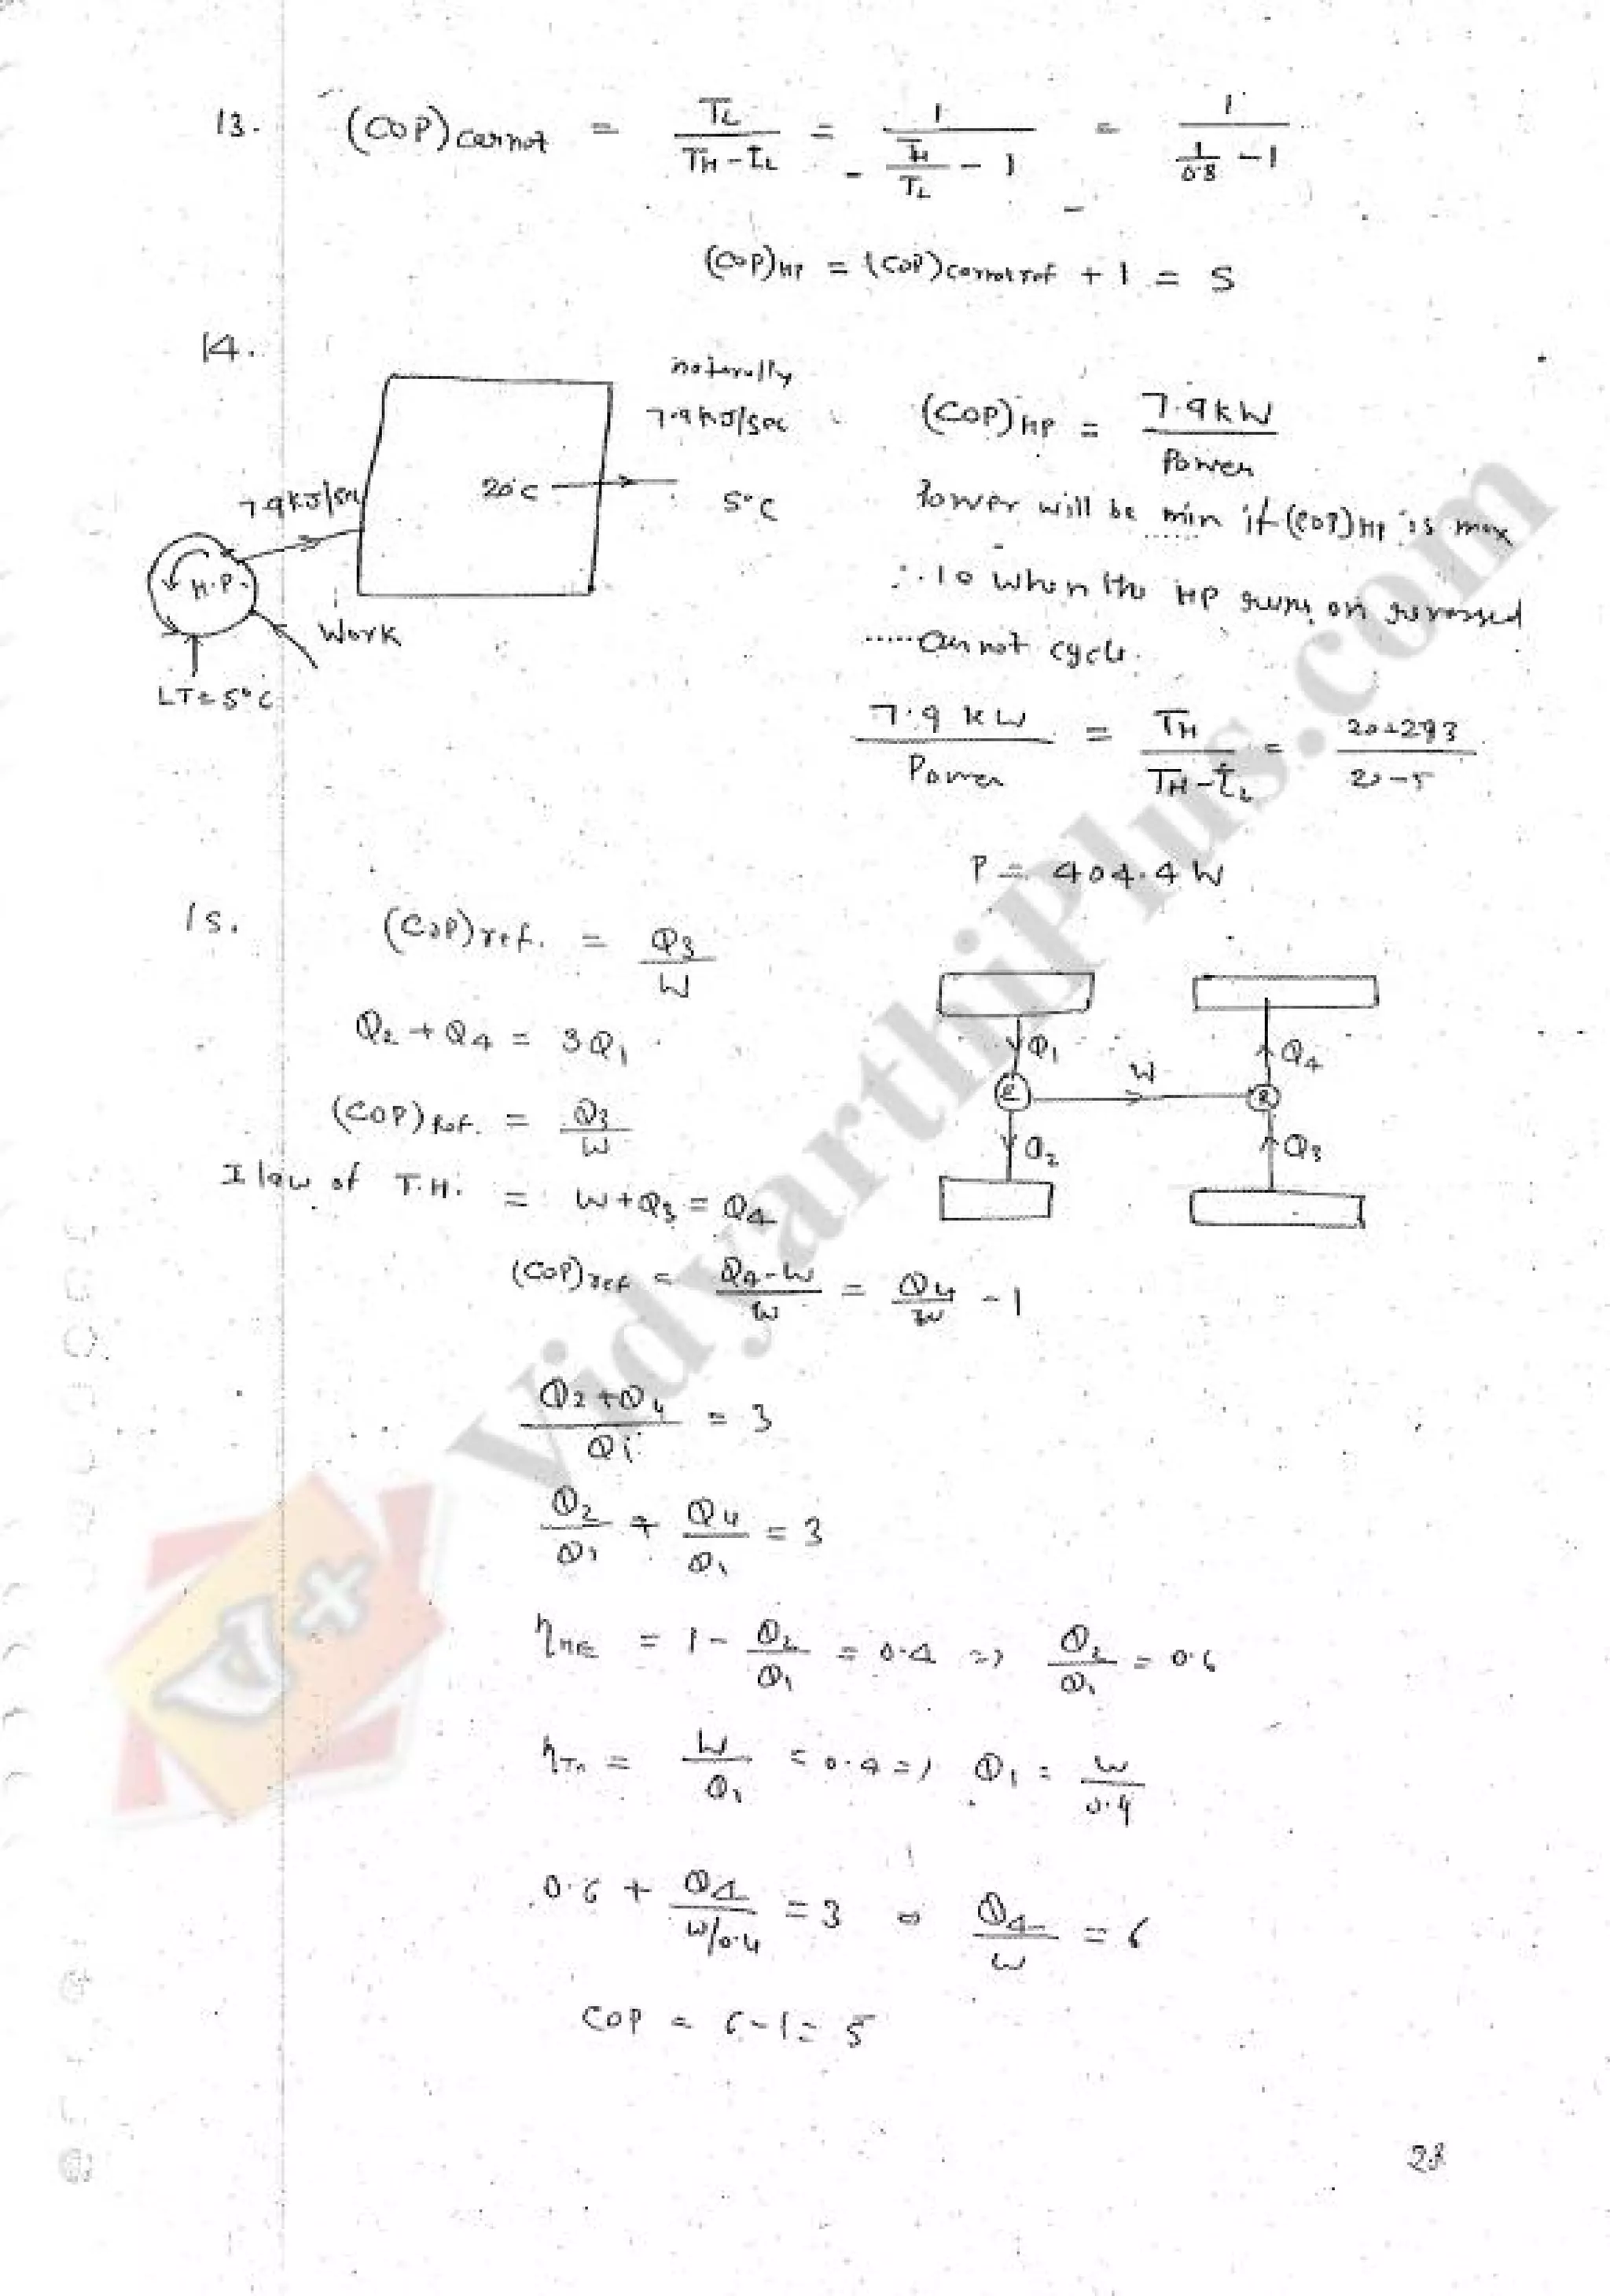 13. (COP)carnot = TL / (TH - TL) = 1 / (TH/TL - 1) = 1 / (1/0.8 - 1)
(COP)HP = (COP)carnot ref + 1 = 5
14.
naturally
7.9 kJ/sec
20°C
5°C
7.9 kJ/sec
H.P.
Work
LT = 5°C
(COP)HP = 7.9 kW / Power
Power will be min if (COP)HP is max
∴ 10 when the HP runs on reversed
......carnot cycle.
7.9 kW / Power = TH / (TH - TL) = 20+293 / 20-5
P = 404.4 W
15. (COP)ref. = Q3 / W
Q2 + Q4 = 3Q1
(COP)Ref. = Q3 / W
I law of T.H. = W + Q3 = Q4
(COP)ref = (Q4 - W) / W = Q4 / W - 1
Q1
E
Q2
W
Q4
R
Q3
(Q2 + Q4) / Q1 = 3
Q2 / Q1 + Q4 / Q1 = 3
ηHE = 1 - Q2 / Q1 = 0.4 => Q2 / Q1 = 0.6
ηTh = W / Q1 = 0.4 => Q1 = W / 0.4
0.6 + Q4 / (W/0.4) = 3 Q4 / W = 6
COP = 6 - 1 = 5
VidyarthiPlus.com
V+